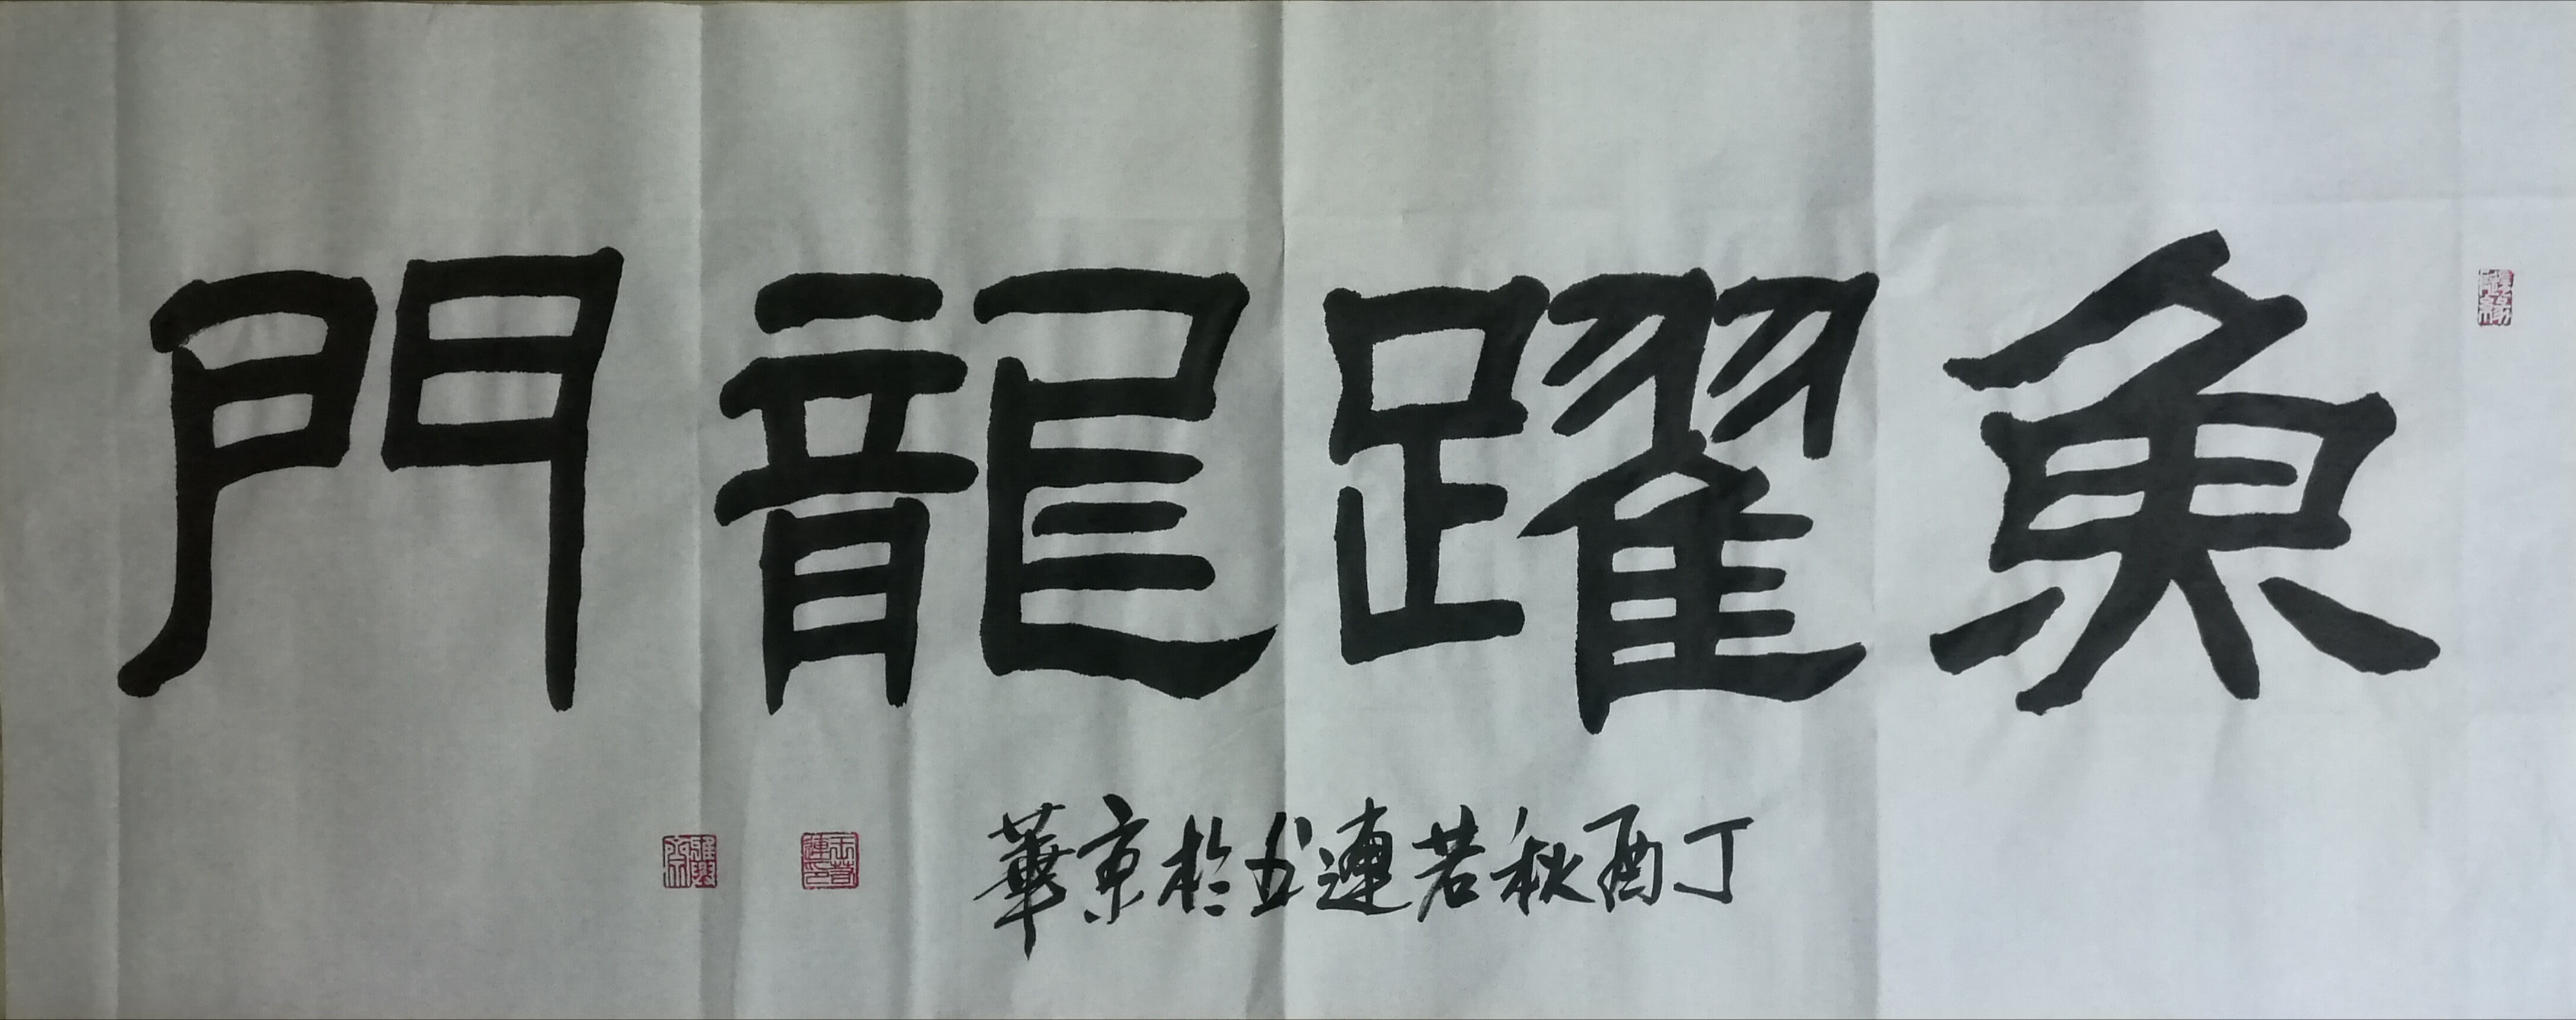 魚躍龍門
丁酉秋若連書於京華